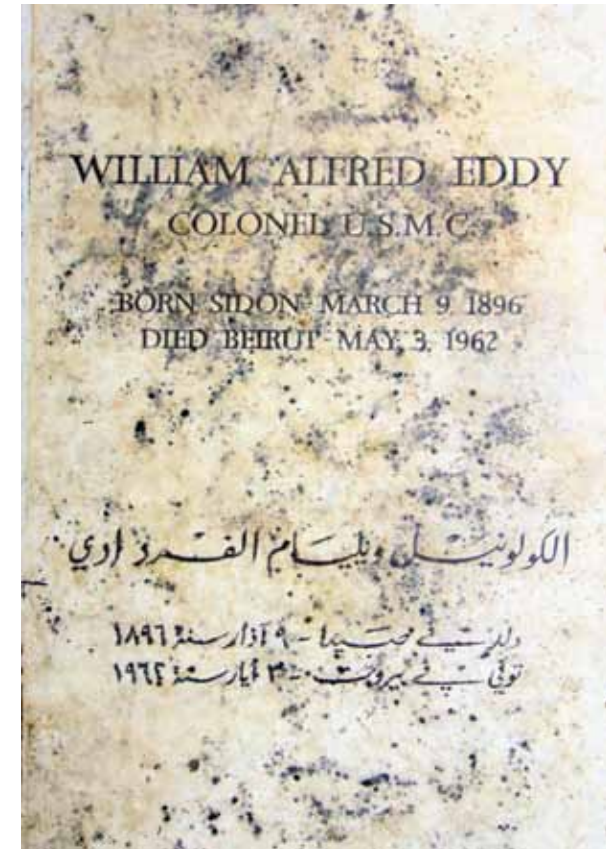 WILLIAM ALFRED EDDY
COLONEL U.S.M.C.
BORN SIDON MARCH 9, 1896
DIED BEIRUT MAY, 3, 1962
الكولونيل ويليام الفرد ادي
ولد في صيدا - ٩ آذار سنة ١٨٩٦
توفي في بيروت - ٣ أيار سنة ١٩٦٢